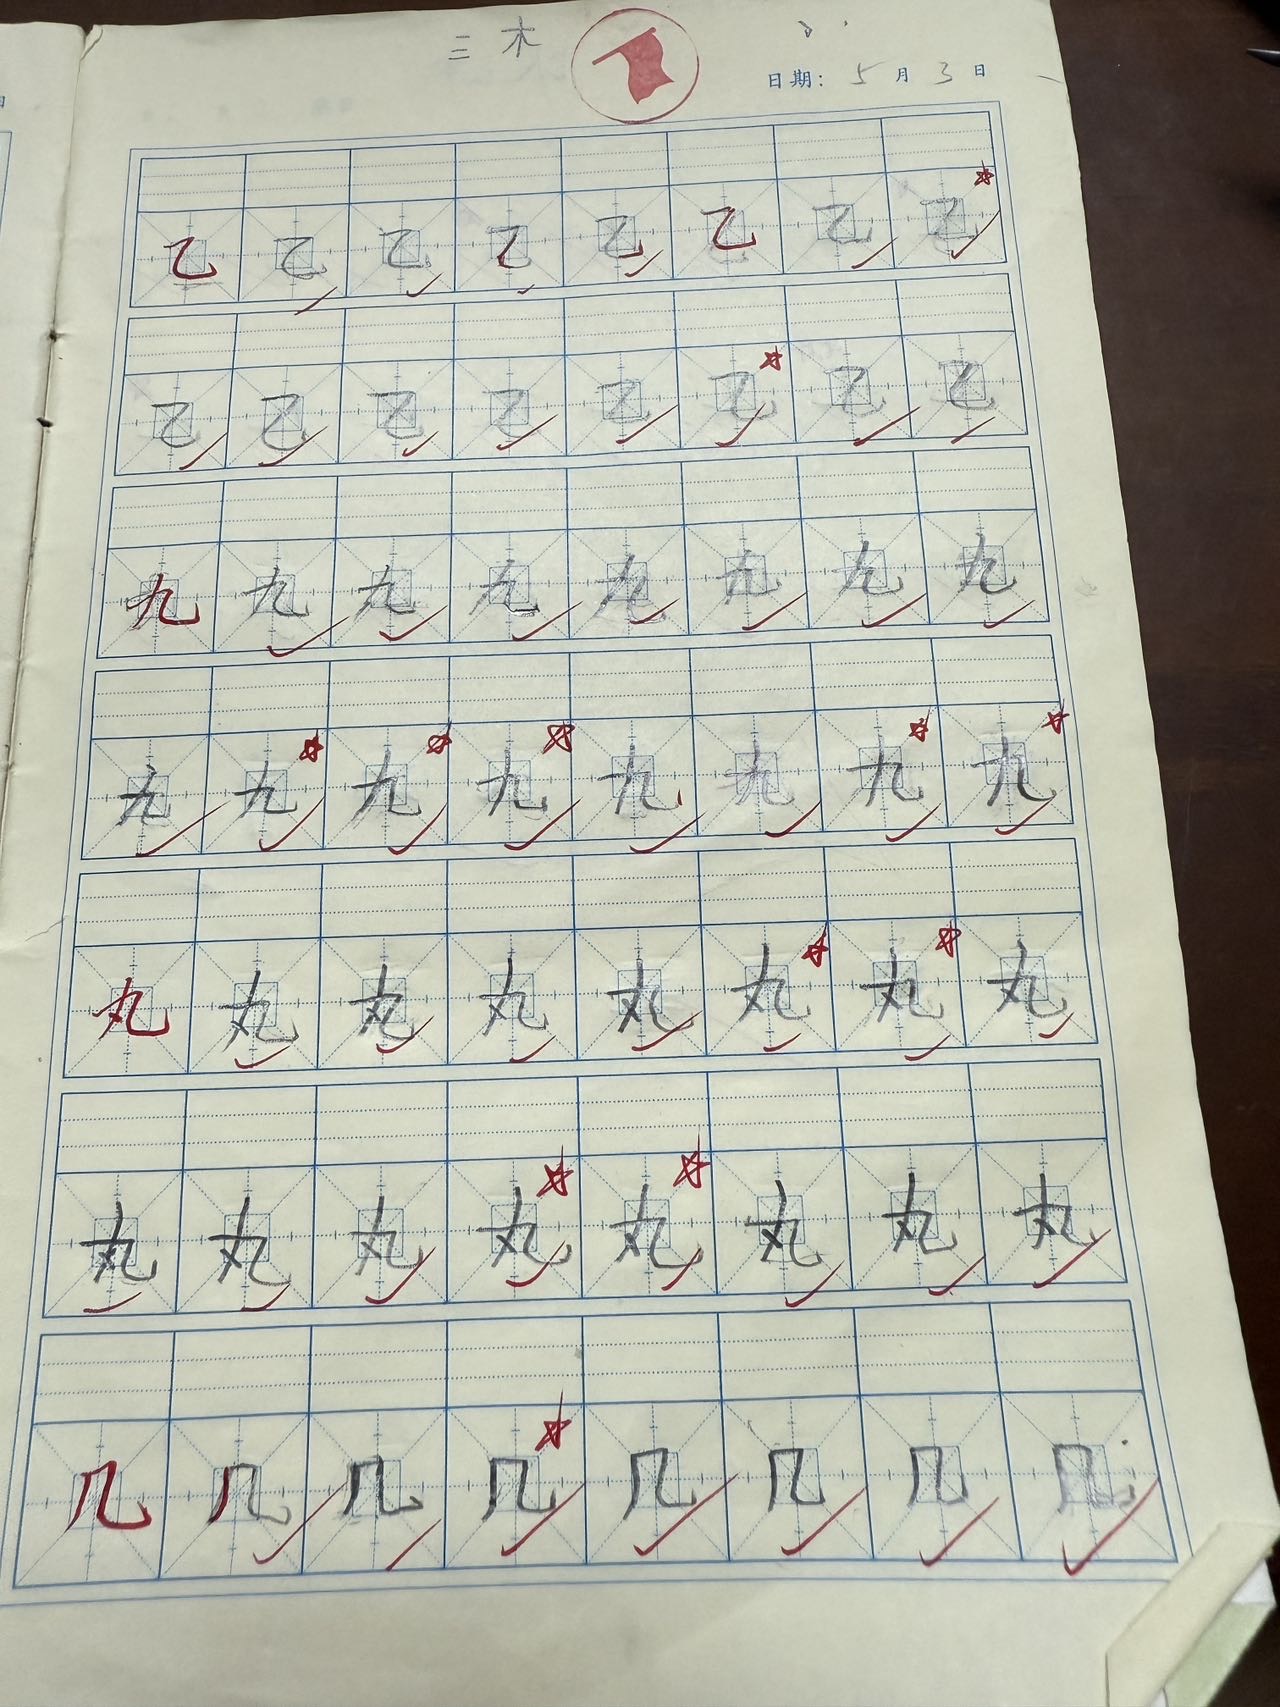 三木
日期：5月3日
乙乙乙乙乙乙乙乙
乙乙乙乙乙乙乙乙
九九九九九九九九
九九九九九九九九
丸丸丸丸丸丸丸丸
丸丸丸丸丸丸丸丸
几几几几几几几几